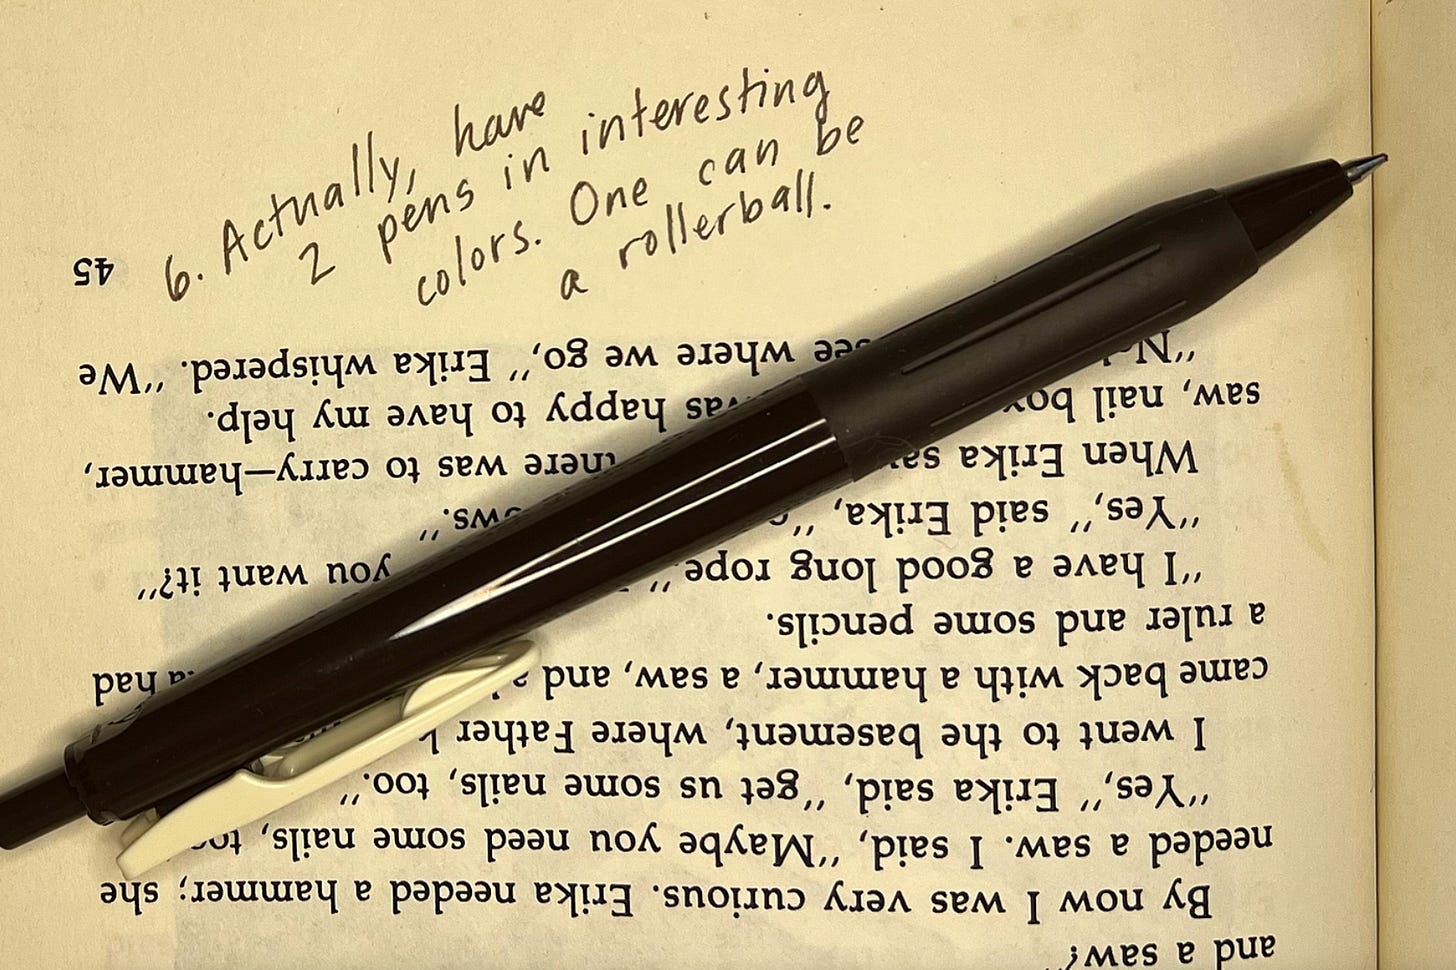 6. Actually, have
2 pens in interesting
colors. One can be
a rollerball.
and a saw?"
By now I was very curious. Erika needed a hammer; she
needed a saw. I said, "Maybe you need some nails, too
"Yes," Erika said, "get us some nails, too."
I went to the basement, where Father
came back with a hammer, a saw, and had
a ruler and some pencils.
"I have a good long rope you want it?"
"Yes," said Erika,
When Erika saw there was to carry—hammer,
saw, nail box was happy to have my help.
see where we go," Erika whispered. "We
45